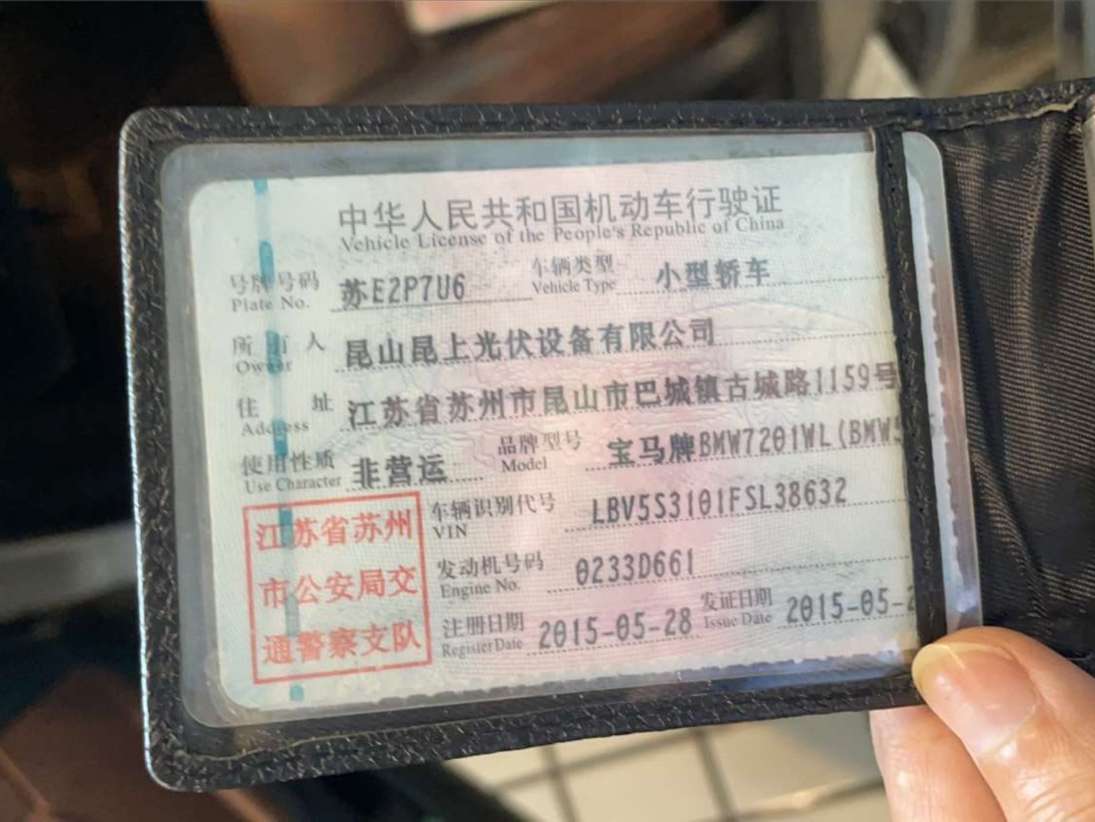 中华人民共和国机动车行驶证
Vehicle License of the People's Republic of China
号牌号码 苏E2P7U6 车辆类型 小型轿车
Plate No. Vehicle Type
所有人 昆山昆上光伏设备有限公司
Owner
住址 江苏省苏州市昆山市巴城镇古城路1159号
Address
使用性质 非营运 品牌型号 宝马牌BMW7201WL(BMW5
Use Character Model
江苏省苏州
市公安局交
通警察支队
车辆识别代号 LBV5S3101FSL38632
VIN
发动机号码 0233D661
Engine No.
注册日期 2015-05-28 发证日期 2015-05-2
Register Date Issue Date